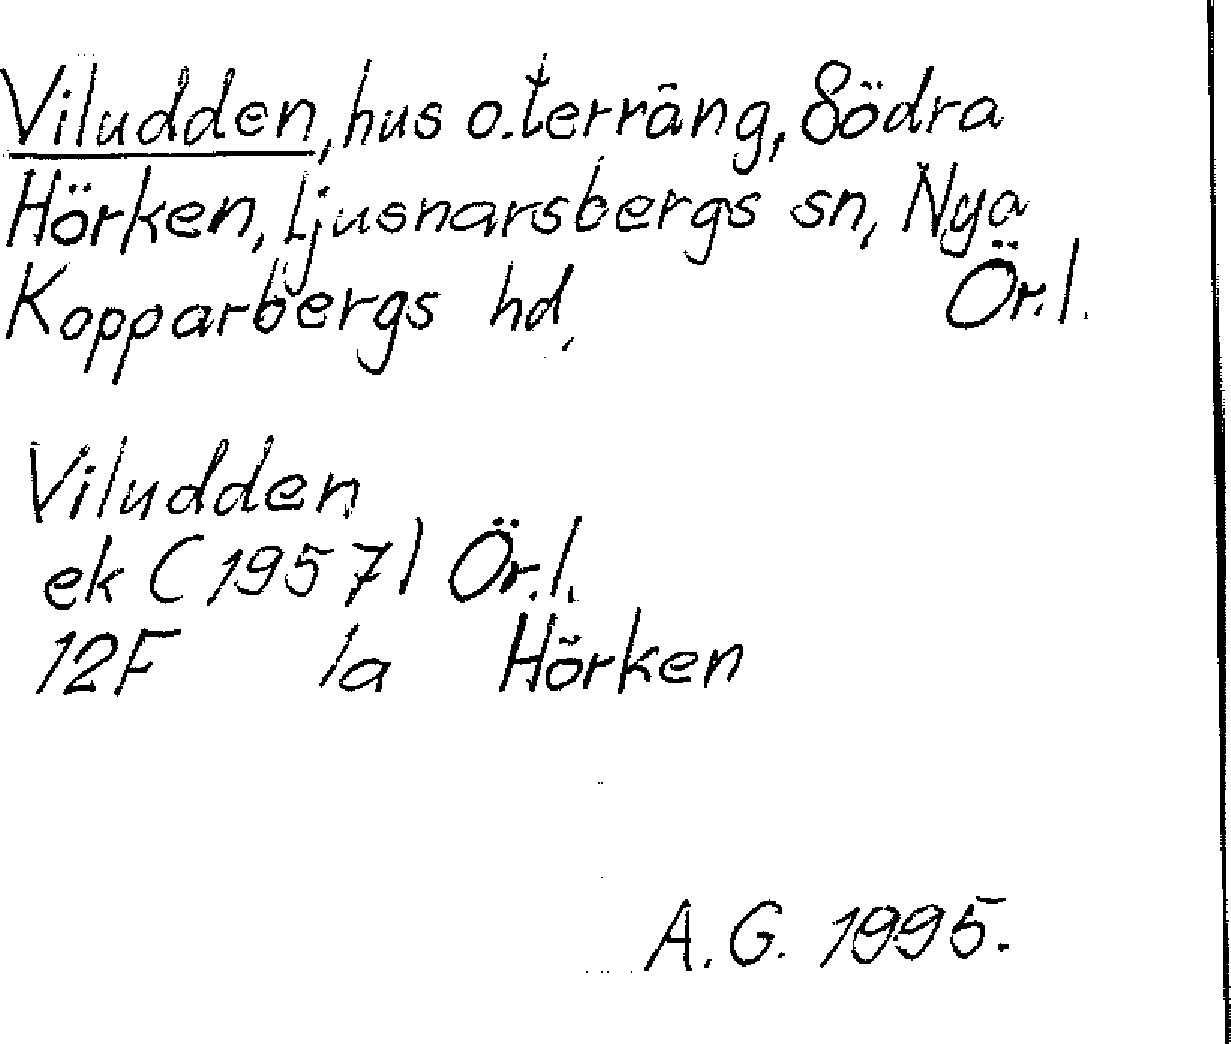 Viludden, hus o. terräng, Södra
Hörken, Ljusnarsbergs sn, Nya
Kopparbergs hd, Ör. l.
Viludden
ek (1957) Ör. l.
12F 1a Hörken
A. G. 1995.